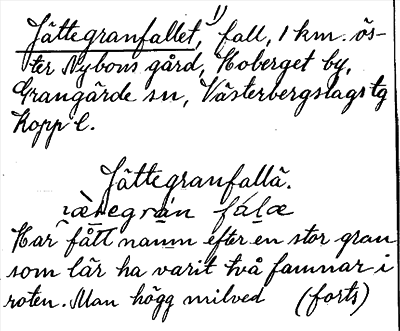 Jättegranfallet, 1)
fall, 1 km. ös-
ter Nybons gård, Hoberget by,
Grangärde sn, Västerbergslags tg
Kopp l.
Jättegranfallä.
Har fått namn efter en stor gran
som lär ha varit två famnar i
roten. Man högg milved (forts)